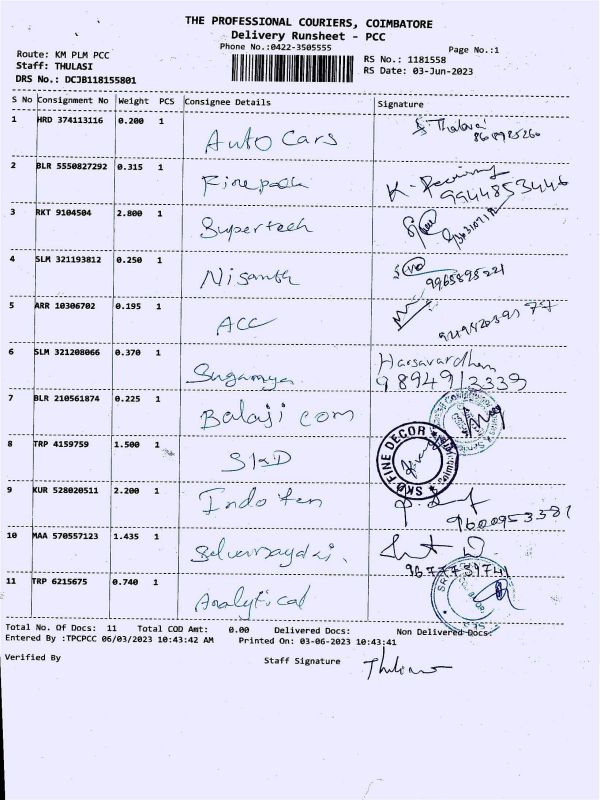 THE PROFESSIONAL COURIERS, COIMBATORE
Delivery Runsheet - PCC
Phone No.:0422-3505555
Page No.:1
Route: KM PLM PCC
Staff: THULASI
DRS No.: DCJB118155801
RS No.: 1181558
RS Date: 03-Jun-2023
S No Consignment No Weight PCS Consignee Details Signature
1 HRD 374113116 0.200 1 Auto Cars
2 BLR 5550827292 0.315 1 9944853446
3 RKT 9104504 2.800 1 Supertech
4 SLM 321193812 0.250 1 Nisanth 9965895221
5 ARR 10306702 0.195 1 ACC
6 SLM 321208066 0.370 1 Sugamya Harsavardhan
9894913339
7 BLR 210561874 0.225 1 Balaji com
8 TRP 4159759 1.500 1 SKD SKD FINE DECOR
9 KUR 528020511 2.200 1 Indo ten 9600953381
10 MAA 570557123 1.435 1
11 TRP 6215675 0.740 1 Analytical
Total No. Of Docs: 11 Total COD Amt: 0.00 Delivered Docs: Non Delivered Docs:
Entered By :TPCPCC 06/03/2023 10:43:42 AM Printed On: 03-06-2023 10:43:41
Verified By Staff Signature